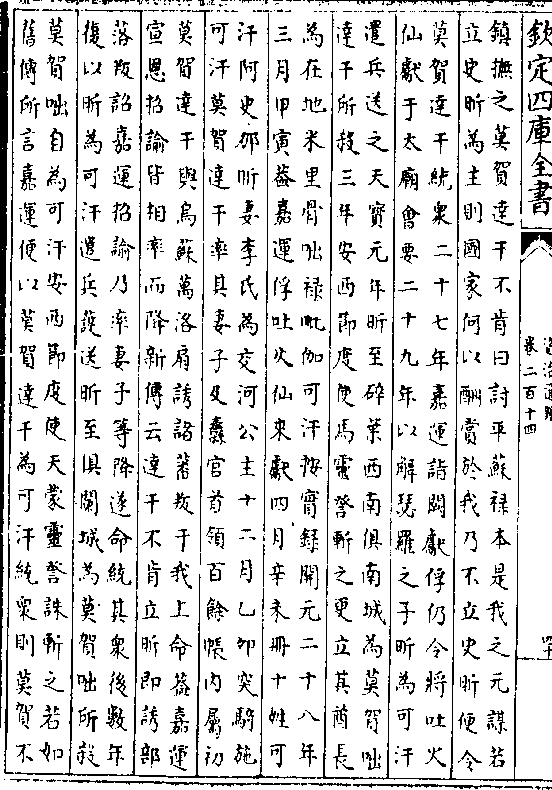 欽定四庫全書
資治通鑑
卷二百十四
鎮撫之莫賀達干不肯曰討平蘇禄本是我之元謀若
立史昕為主則國家何以酬賞於我乃不立史昕便令
莫賀達干統衆二十七年嘉運詣闕獻俘仍令將吐火
仙獻于太廟會要二十九年以解瑟羅之子昕為可汗
遣兵送之天寶元年昕至碎葉西南俱南城為莫賀咄
達干所殺三年安西節度使馬靈詧斬之更立其酋長
為在地米里骨咄禄毗伽可汗按實録開元二十八年
三月甲寅葢嘉運俘吐火仙來獻四月辛未冊十姓可
汗阿史那昕妻李氏為交河公主十二月乙卯突騎施
可汗莫賀達干率其妻子及纛官首領百餘帳内屬初
莫賀達干與烏蘇萬洛扇誘諸蕃叛于我上命葢嘉運
宣恩招諭皆相率而降新傳云達干不肯立昕即誘部
落叛詔嘉運招諭乃率妻子等降遂命統其衆後數年
復以昕為可汗遣兵護送昕至俱蘭城為莫賀咄所殺
莫賀咄自為可汗安西節度使夫蒙靈詧誅斬之若如
舊傳所言嘉運便以莫賀達干為可汗統衆則莫賀不